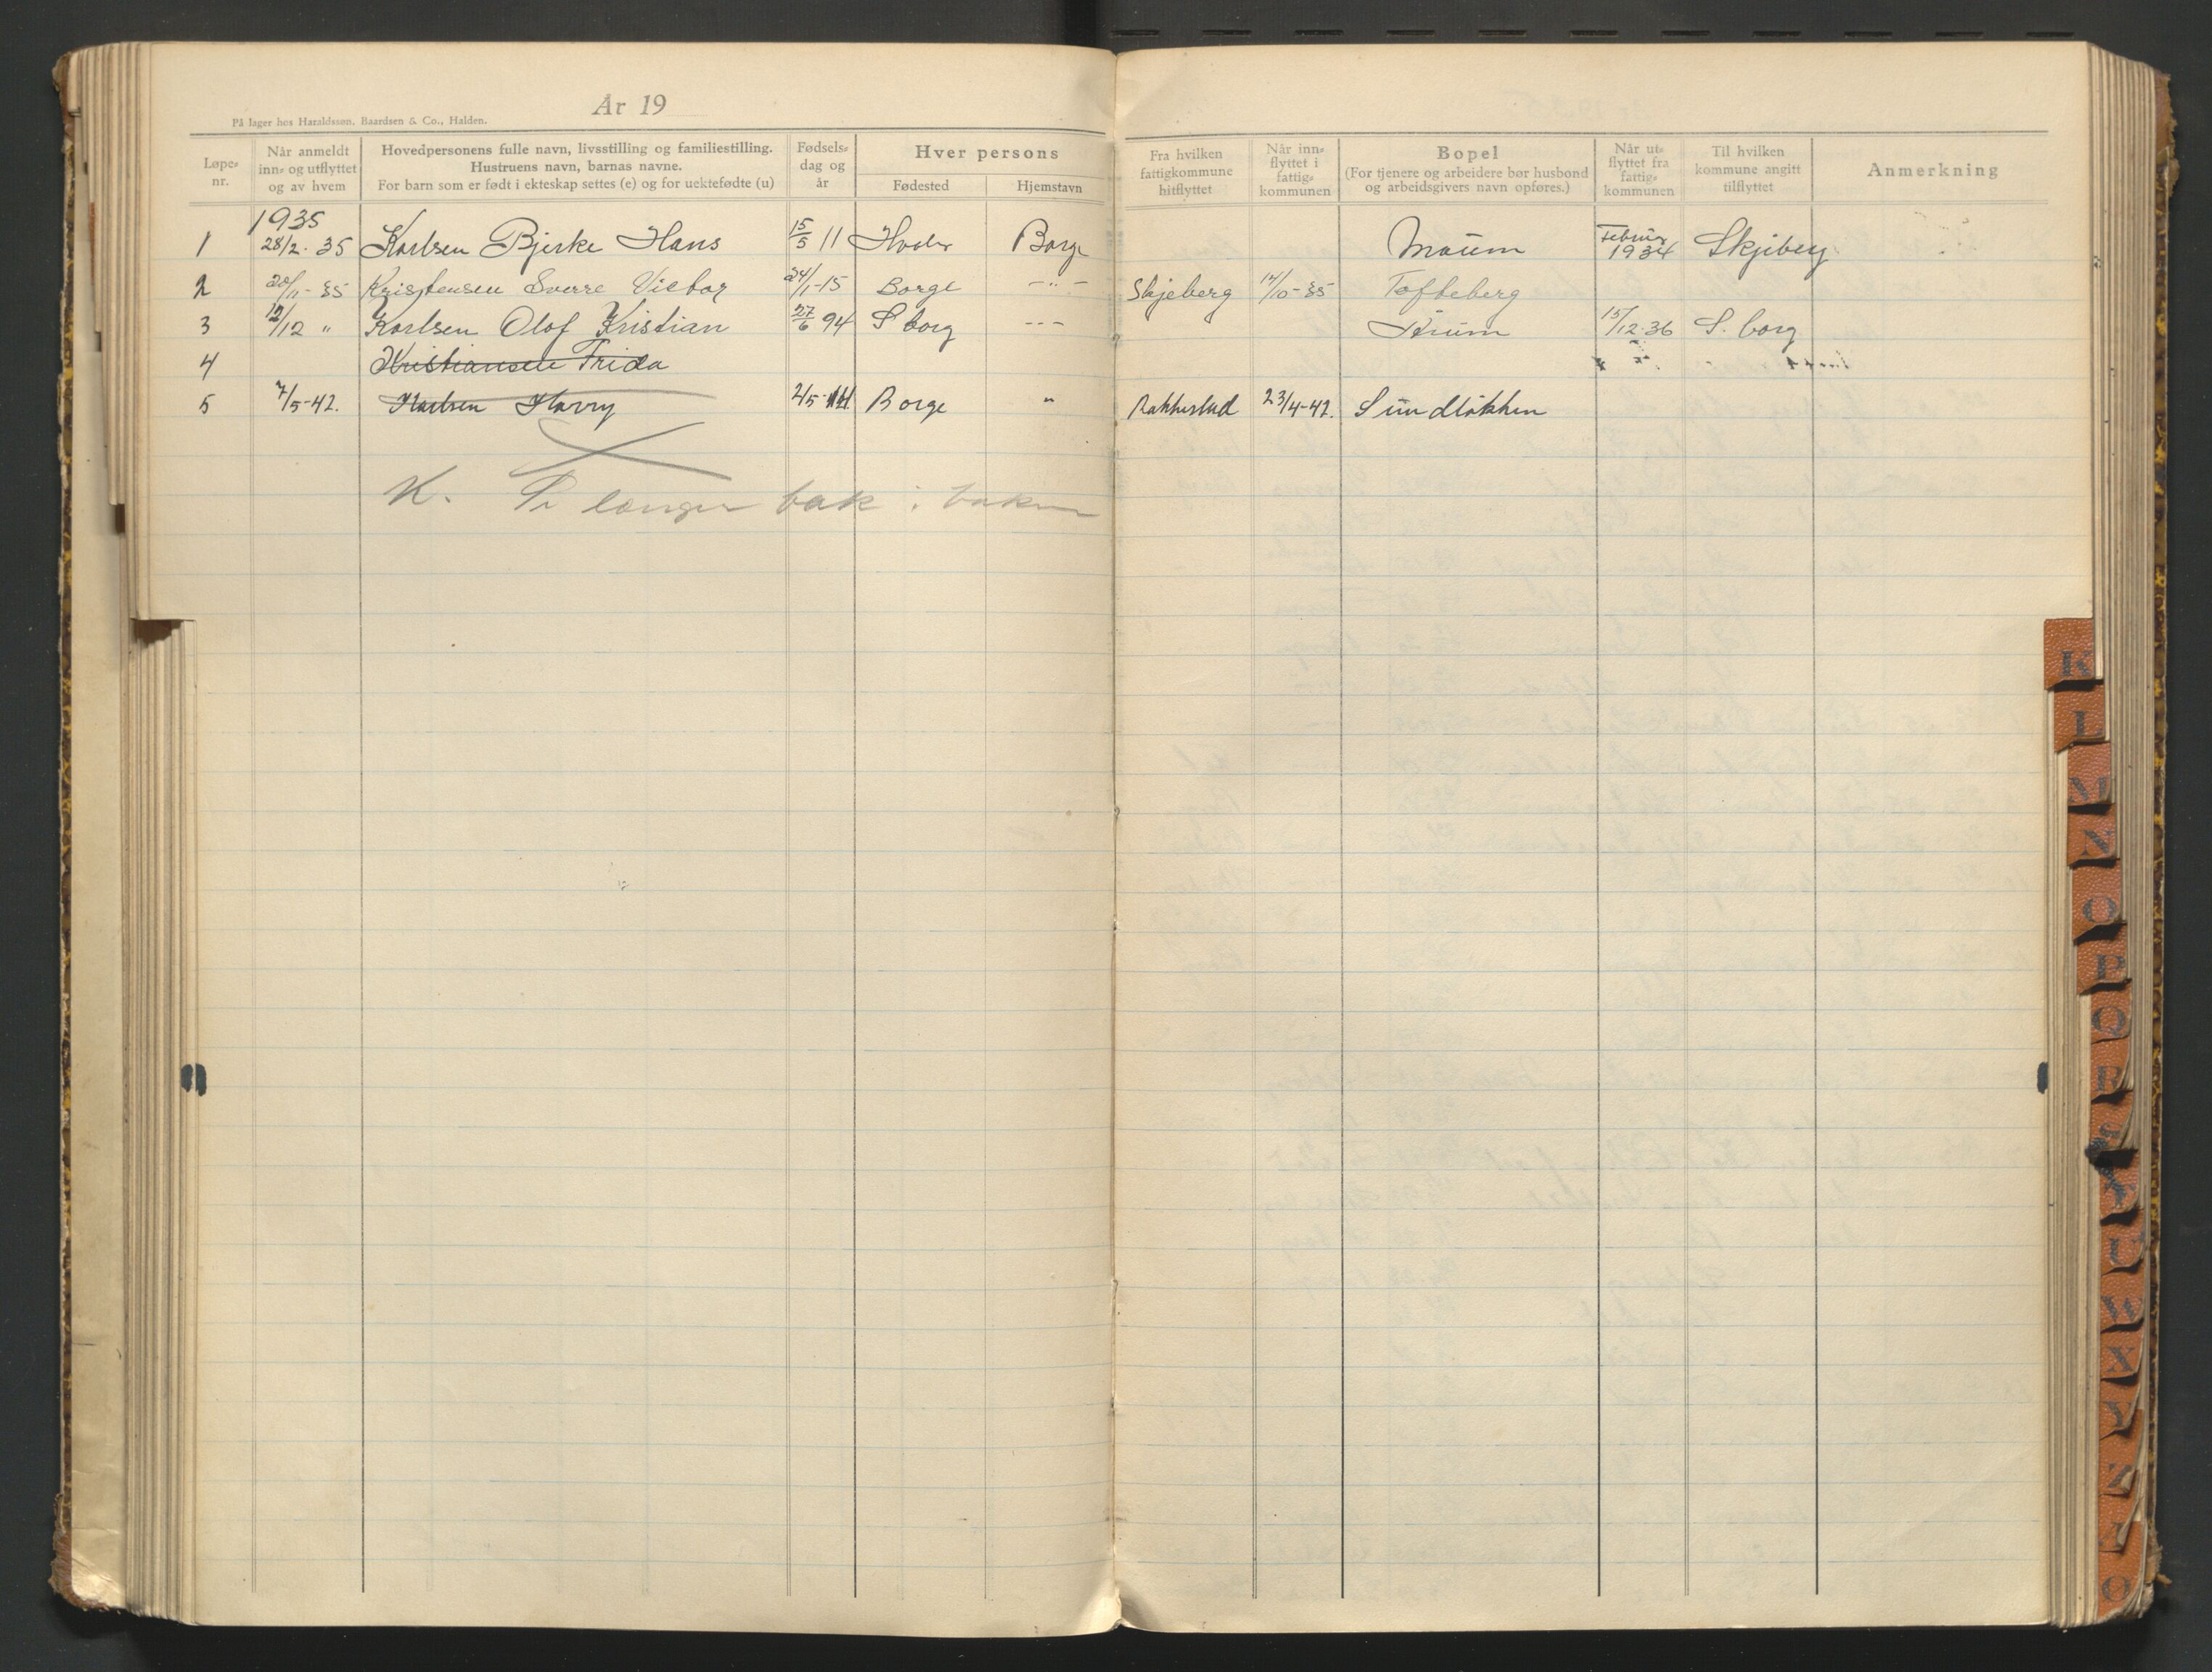 År 19
På lager hos Haraldssøn, Baardsen & Co., Halden.
Løpe-nr. Når anmeldt inn- og utflyttet og av hvem Hovedpersonens fulle navn, livsstilling og familiestilling. Hustruens navn, barnas navne. For barn som er født i ekteskap settes (e) og for uektefødte (u) Fødsels-dag og år Hver persons Fødested Hjemstavn Fra hvilken fattigkommune hitflyttet Når inn-flyttet i fattig-kommunen Bopel (For tjenere og arbeidere bør husbond og arbeidsgivers navn opføres.) Når ut-flyttet fra fattig-kommunen Til hvilken kommune angitt tilflyttet Anmerkning
1935
1 28/2. 35 Karlsen Bjerke Hans 15/5 11 Hvaler Borge Moum Februar 1934 Skjeberg
2 20/11-35 Kristensen Sverre Victor 24/1-15 Borge -"- Skjeberg 14/10-35 Tofteberg
3 12/12 " Karlsen Olof Kristian 27/6 94 S borg --- 15/12-36 S. borg
4 Kristiansen Frida
5 7/5-42. Karlsen Harry 2/5-14 Borge " Rakkestad 23/4-42. Sundløkken
K. Se længer bak i boken
K
L
M
N
O
P
Q
R
S
T
U
W
X
Y
Z
Æ
Ø